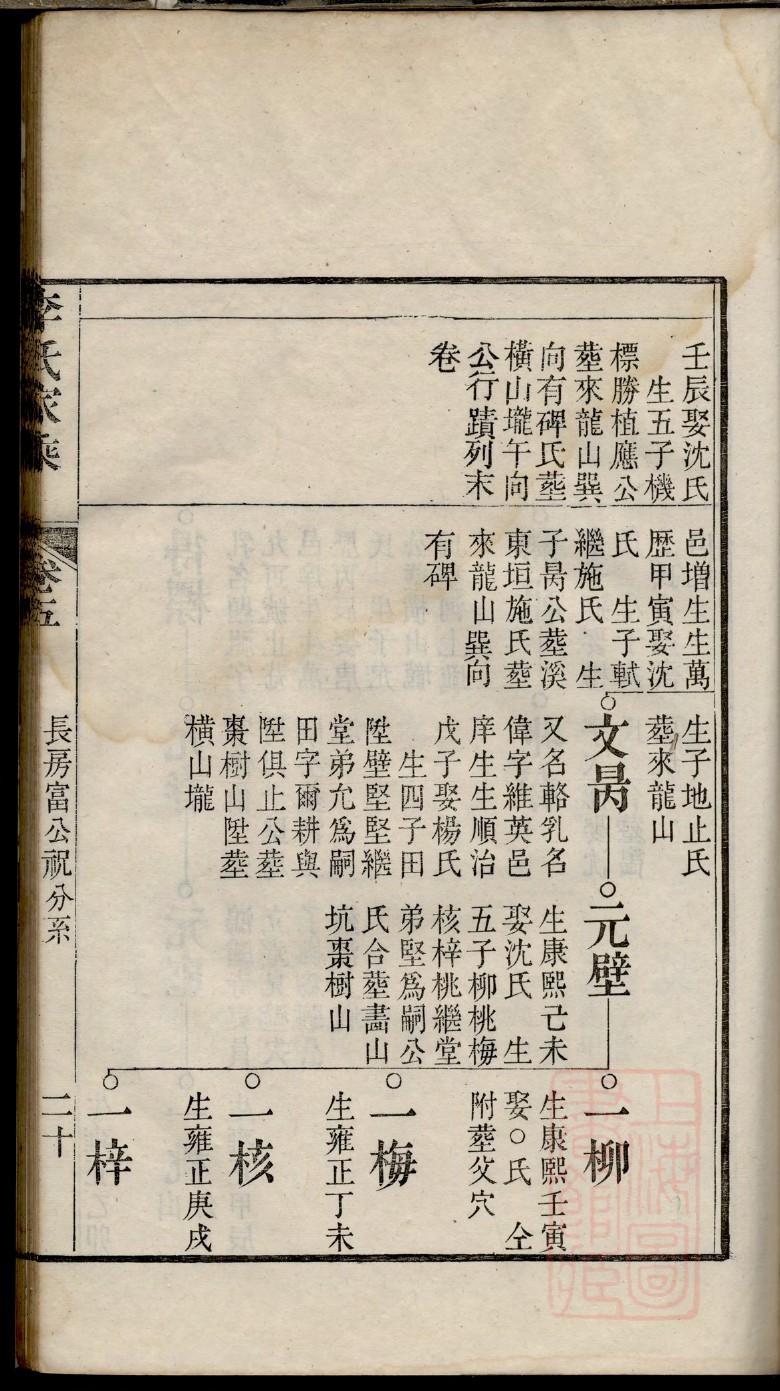 壬辰娶沈氏
生五子機
標勝植應公
塟來龍山巽
向有碑氏塟
橫山壠午向
公行蹟列末
卷
邑增生生萬
歴甲寅娶沈
氏　生子軾
繼施氏　生
子昺公塟溪
東垣施氏塟
來龍山巽向
有碑
生子地止氏
塟來龍山
文昺
又名輅乳名
偉字維英邑
庠生生順治
戊子娶楊氏
生四子田
陞壁堅堅繼
堂弟允爲嗣
田字爾耕與
陞俱止公塟
棗樹山陞塟
橫山壠
元壁
生康熙己未
娶沈氏　生
五子柳桃梅
核梓桃繼堂
弟堅爲嗣公
氏合塟畵山
坑棗樹山
一柳
生康熙壬寅
娶○氏　仝
附塟父穴
一梅
生雍正丁未
一核
生雍正庚戌
一梓
李氏家乘
卷五
長房富公祝分系
二十